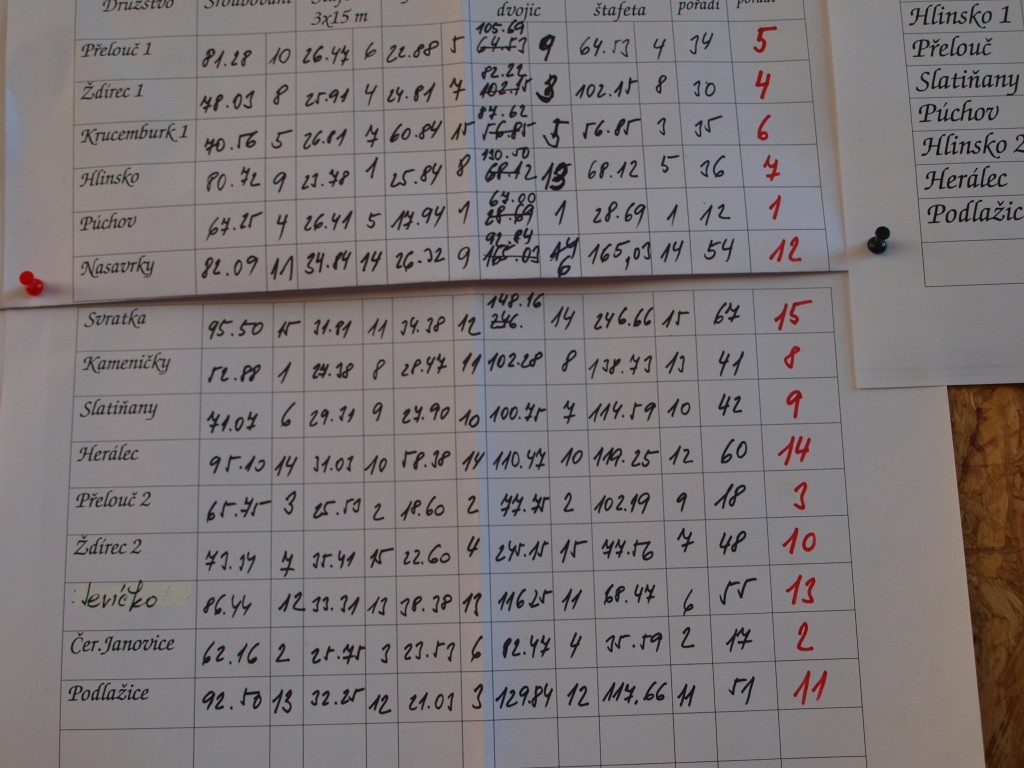 Družstvo dvojic štafeta pořadí
3x15 m
Přelouč 1 81.28 10 26.47 6 22.88 5 105.69 64.53 9 64.53 4 34 5
Ždírec 1 78.03 8 25.91 4 24.81 7 82.22 102.15 3 102.15 8 30 4
Krucemburk 1 70.56 5 26.81 7 60.84 15 87.62 56.85 5 56.85 3 35 6
Hlinsko 80.72 9 23.78 1 25.84 8 130.50 68.12 13 68.12 5 36 7
Púchov 67.25 4 26.41 5 17.94 1 67.00 28.69 1 28.69 1 12 1
Nasavrky 82.09 11 34.84 14 26.32 9 92.84 165.03 6 165,03 14 54 12
Svratka 95.50 15 31.81 11 34.38 12 148.16 246. 14 246.66 15 67 15
Kameničky 52.88 1 27.38 8 28.47 11 102.28 8 138.73 13 41 8
Slatiňany 71.07 6 29.31 9 27.90 10 100.75 7 114.59 10 42 9
Herálec 95.10 14 31.03 10 58.38 14 110.47 10 119.25 12 60 14
Přelouč 2 65.75 3 25.53 2 18.60 2 77.75 2 102.19 9 18 3
Ždírec 2 73.34 7 35.41 15 22.60 4 245.15 15 77.56 7 48 10
Jevíčko 86.44 12 33.31 13 38.38 13 116.25 11 68.47 6 55 13
Čer.Janovice 62.16 2 25.75 3 23.53 6 82.47 4 35.59 2 17 2
Podlažice 92.50 13 32.25 12 21.03 3 129.84 12 117.66 11 51 11
Hlinsko 1
Přelouč
Slatiňany
Púchov
Hlinsko 2
Herálec
Podlažic